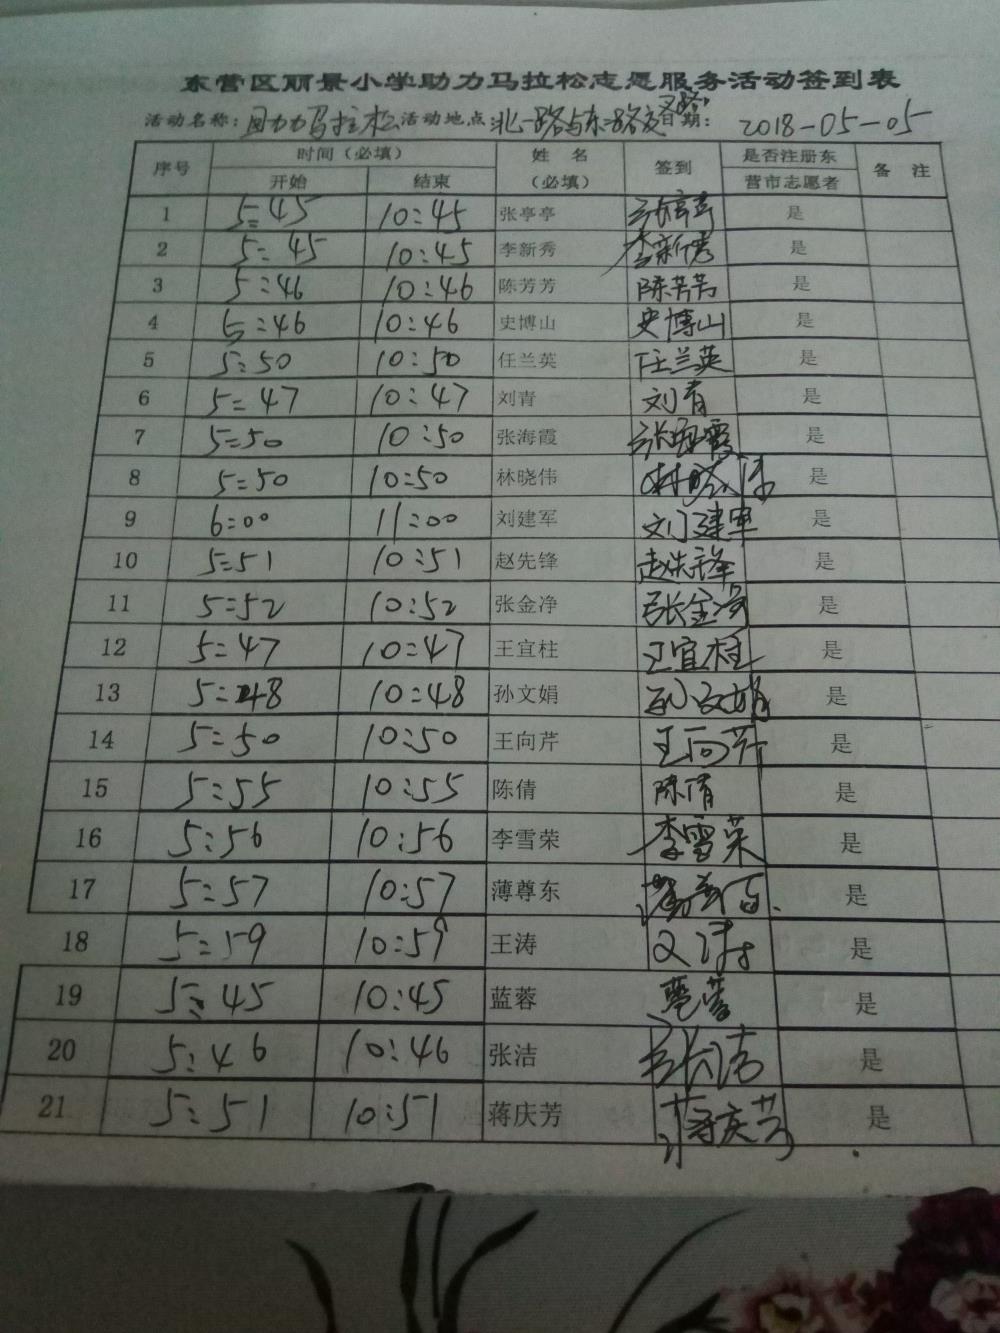 东营区丽景小学助力马拉松志愿服务活动签到表
活动名称：助力马拉松 活动地点：北一路与东路交叉路口 日期：2018-05-05
序号 时间（必填） 姓名（必填） 签到 是否注册东营市志愿者 备注
开始 结束
1 5:45 10:45 张亭亭 张亭亭 是
2 5:45 10:45 李新秀 李新秀 是
3 5:46 10:46 陈芳芳 陈芳芳 是
4 5:46 10:46 史博山 史博山 是
5 5:50 10:50 任兰英 任兰英 是
6 5:47 10:47 刘青 刘青 是
7 5:50 10:50 张海霞 张海霞 是
8 5:50 10:50 林晓伟 林晓伟 是
9 6:00 11:00 刘建军 刘建军 是
10 5:51 10:51 赵先锋 赵先锋 是
11 5:52 10:52 张金净 张金净 是
12 5:47 10:47 王宜柱 王宜柱 是
13 5:48 10:48 孙文娟 孙文娟 是
14 5:50 10:50 王向芹 王向芹 是
15 5:55 10:55 陈倩 陈倩 是
16 5:56 10:56 李雪荣 李雪荣 是
17 5:57 10:57 薄尊东 是
18 5:59 10:59 王涛 王涛 是
19 5:45 10:45 蓝蓉 蓝蓉 是
20 5:46 10:46 张洁 张洁 是
21 5:51 10:51 蒋庆芳 蒋庆芳 是